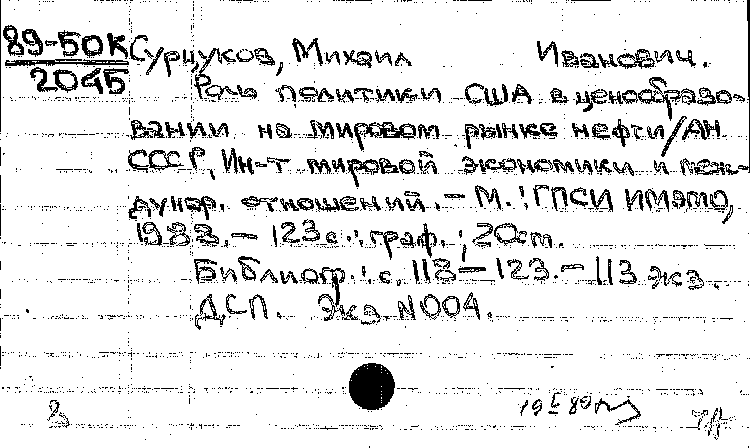 89-50К Сурцуков, Михаил Иванович.
2045 Роль политики США в ценообразо-
вании на мировом рынке нефти/АН
СССР, Ин-т мировой экономики и меж-
дунар. отношений. — М.: ГПСИ ИМЭМО,
1988. — 123 с.: граф.; 20 см.
Библиогр.: с. 118—123. — 113 экз.
ДСП. Экз. N 004.